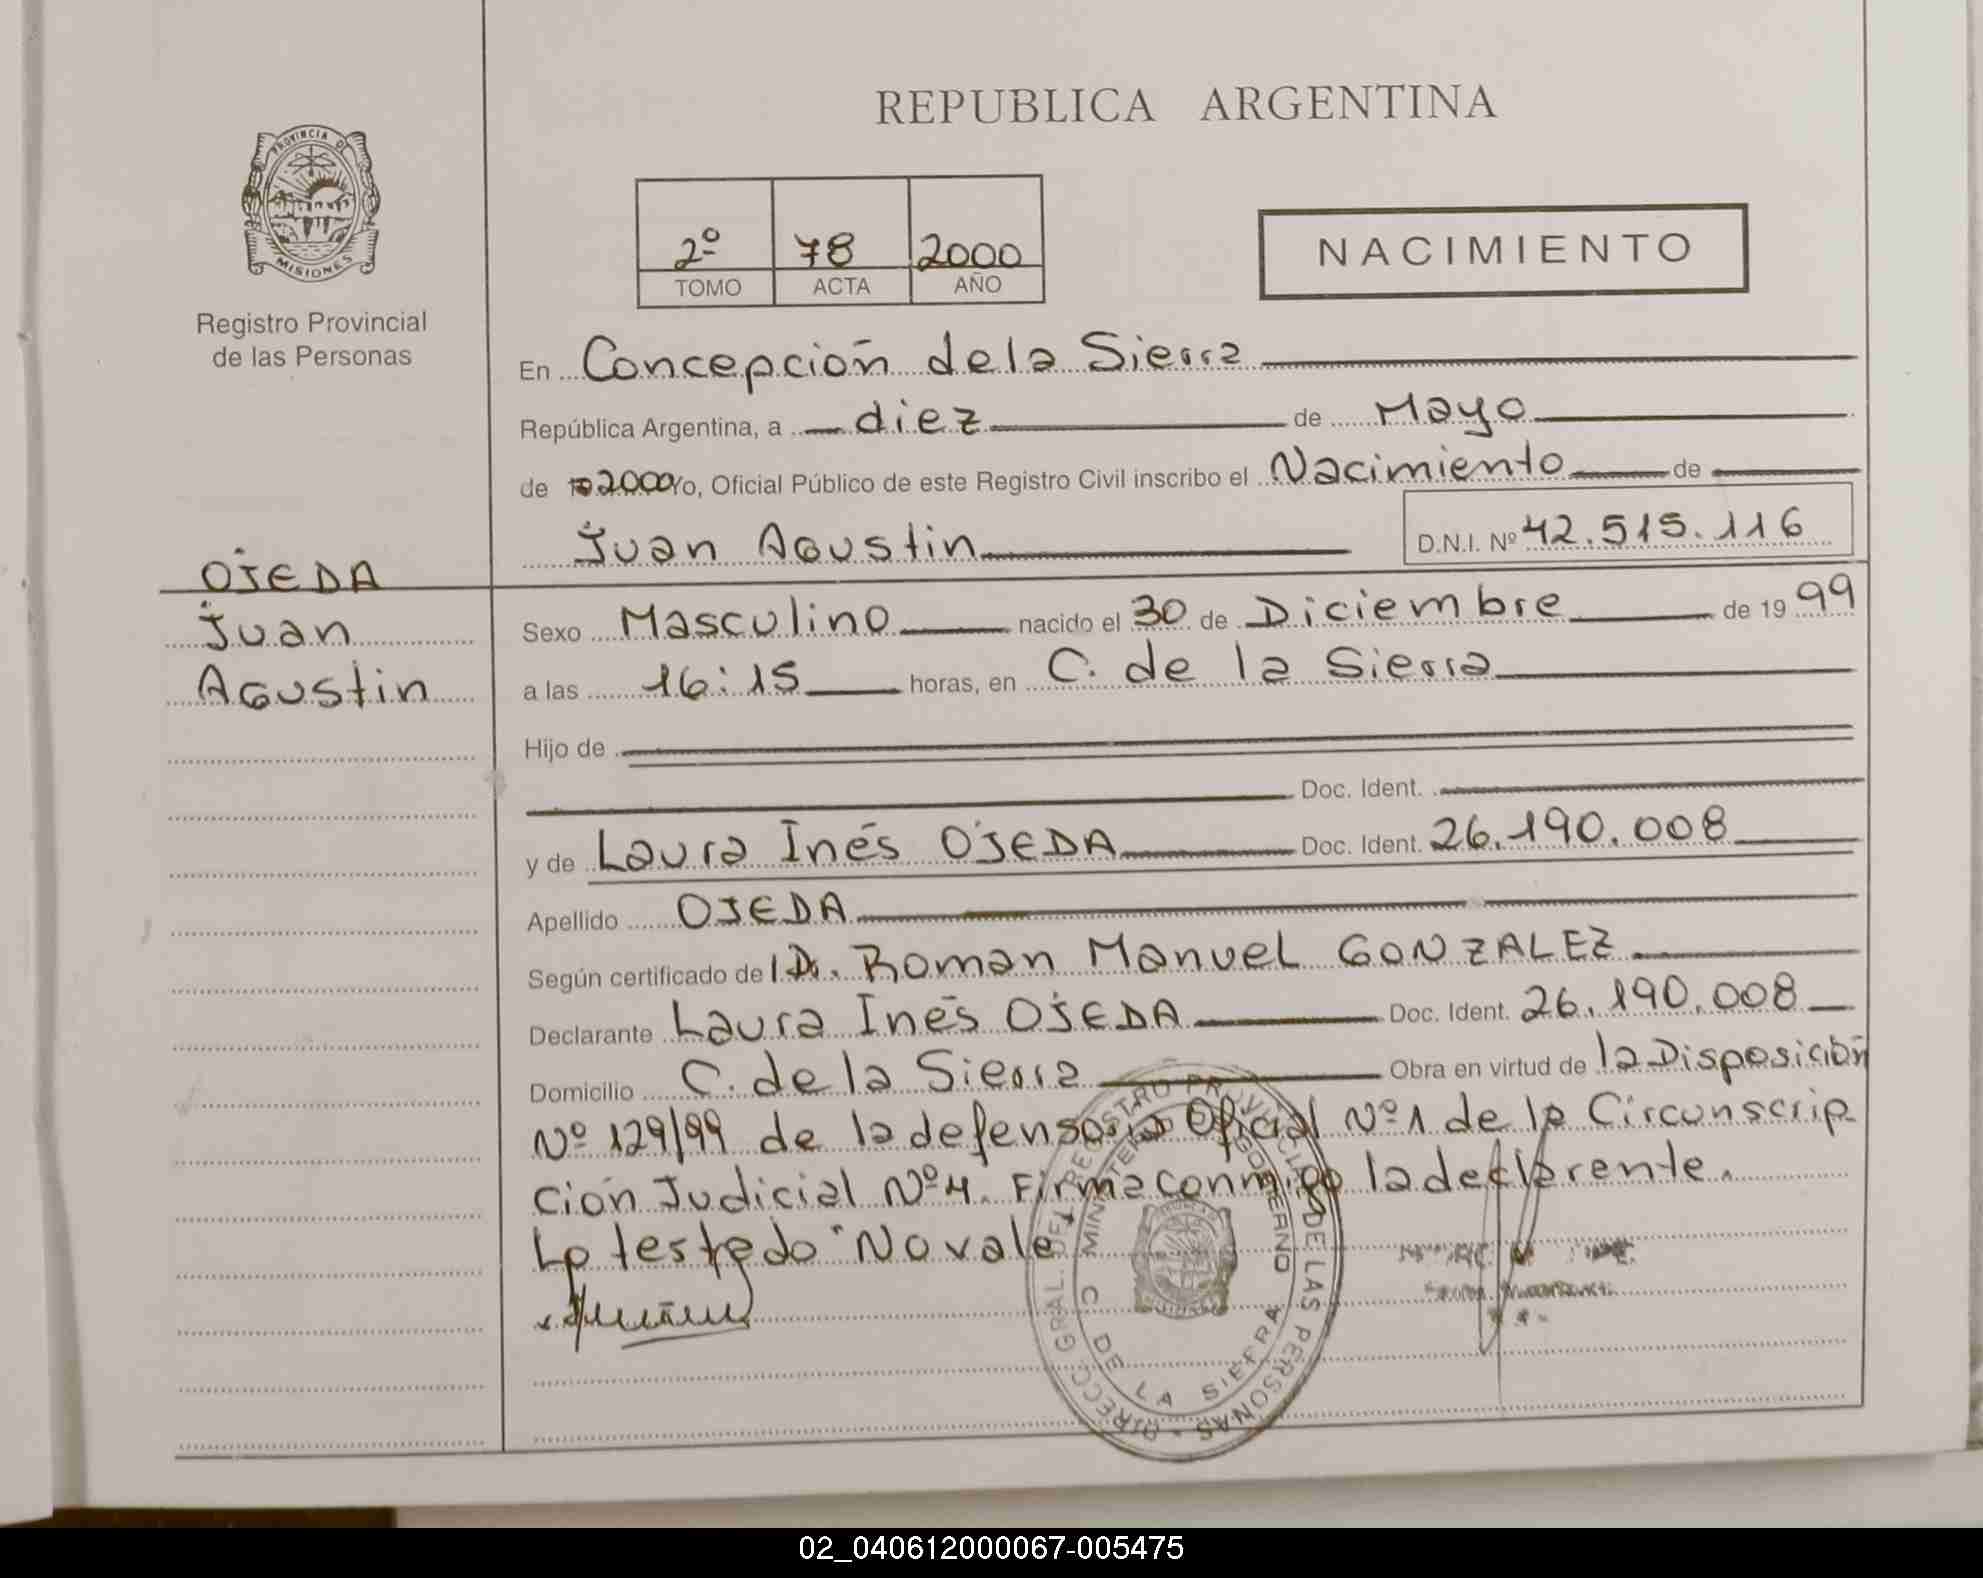 REPUBLICA ARGENTINA
PROVINCIA DE
MISIONES
Registro Provincial
de las Personas
2º 78 2000
TOMO ACTA AÑO
NACIMIENTO
En Concepción de la Sierra
República Argentina, a diez de Mayo
de 2000 Yo, Oficial Público de este Registro Civil inscribo el Nacimiento de
Juan Agustin D.N.I. Nº 42.515.116
OJEDA
Juan
Agustin
Sexo Masculino nacido el 30 de Diciembre de 19 99
a las 16:15 horas, en C. de la Sierra
Hijo de
Doc. Ident.
y de Laura Inés OJEDA Doc. Ident. 26.190.008
Apellido OJEDA
Según certificado de l Dr. Roman Manuel GONZALEZ
Declarante Laura Inés OJEDA Doc. Ident. 26.190.008
Domicilio C. de la Sierra Obra en virtud de la Disposición
Nº 129/99 de la defensoria Oficial Nº 1 de la Circunscrip
ción Judicial Nº 4. Firma conmigo la declarente.
Lo testado "No vale"
DIRECC. GRAL. DEL REGISTRO PROVINCIAL DE LAS PERSONAS
MINISTERIO GOBIERNO
C DE LA SIERRA
02_040612000067-005475